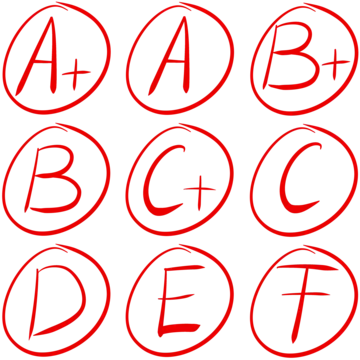 A+ A B+
B C+ C
D E F